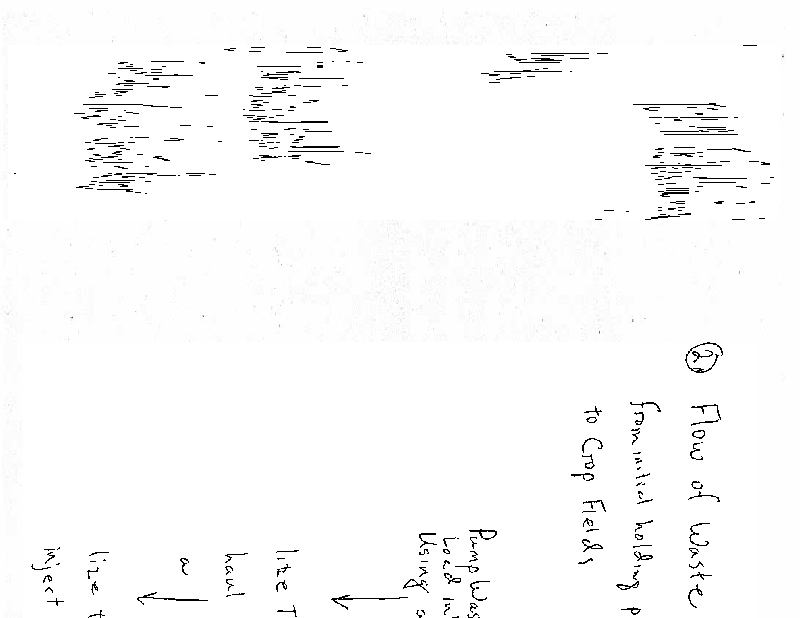 ② Flow of Waste
from initial holding p
to Crop Fields
Pump Was
Load in
Using a
like T
haul
a
like t
inject